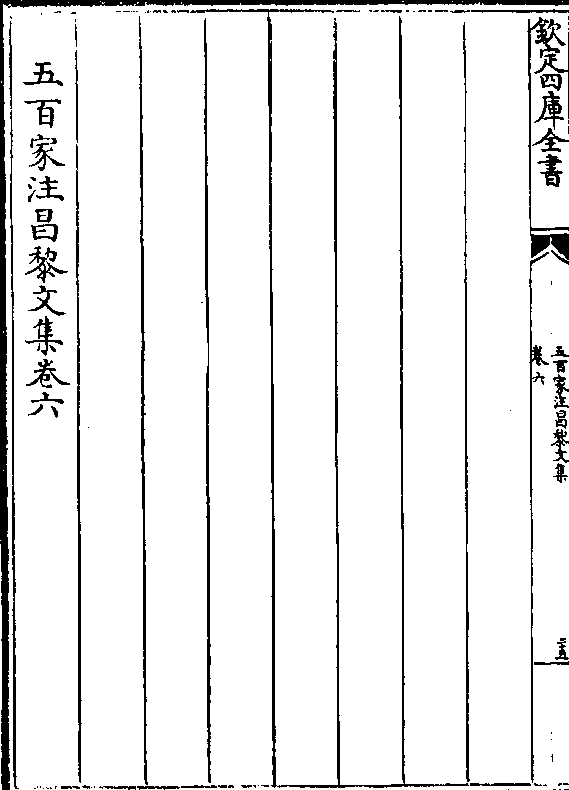 欽定四庫全書
五百家注昌黎文集
卷六
二五
五百家注昌黎文集卷六